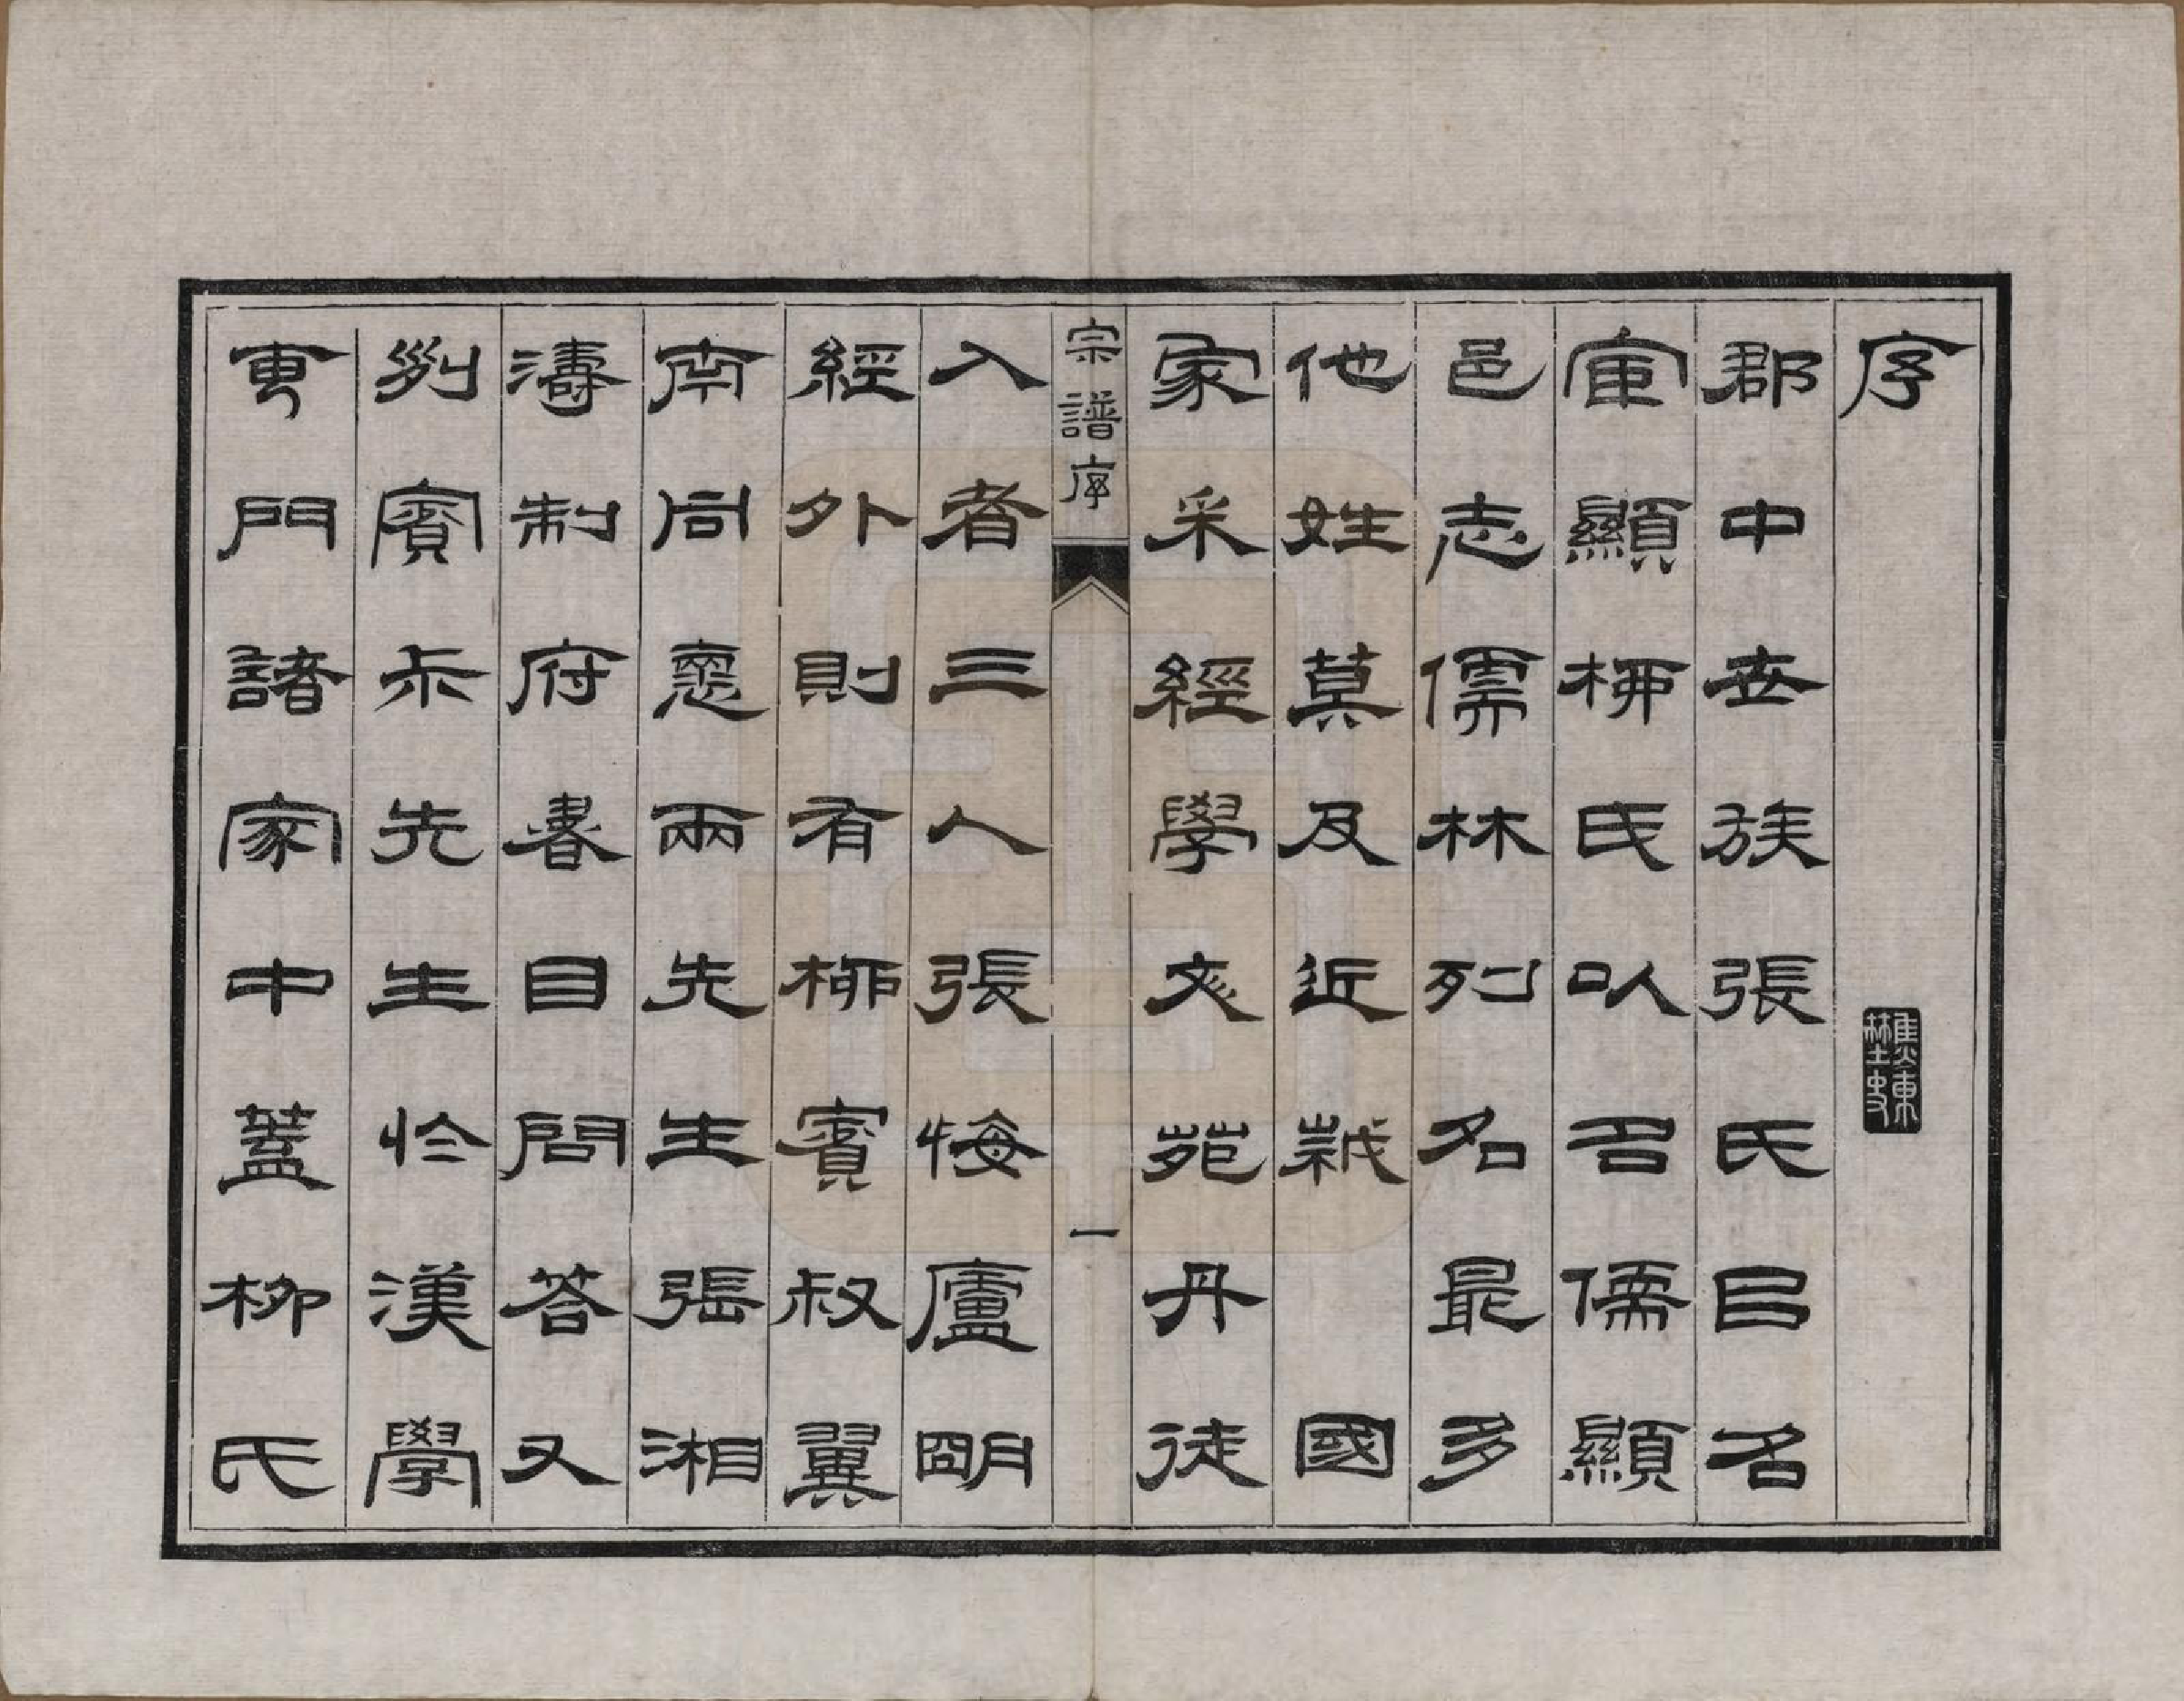 序
焦東埜史
郡中世族張氏㠯名
宦顯柳氏㕥名儒顯
邑志儒林列名最多
他姓莫及近歲 國
家采經學文苑丹徒
宗譜序 一
入者三人張悔廬明
經外則有柳賓叔翼
南同悳兩先生張湘
濤制府書目問答又
列賓尗先生於漢學
專門諸家中蓋柳氏